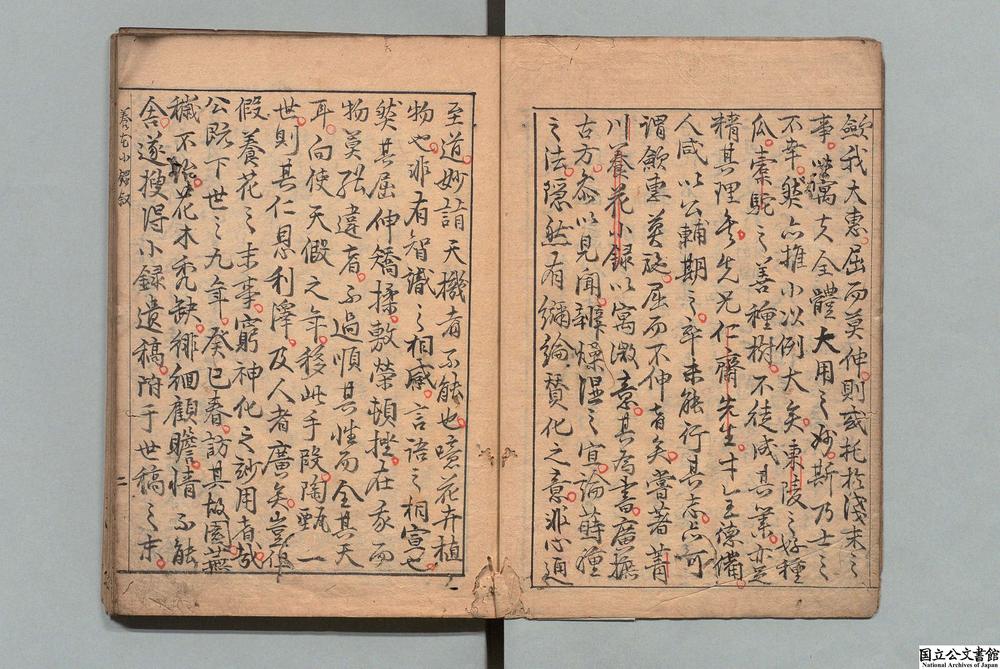 歛我大惠屈而莫伸則或托於淺末之
事以寓夫全體大用之妙斯乃士之
不幸然亦推小以例大矣東陵之好種
瓜橐駝之善種樹不徒咸其業亦足
精其理矣先兄仁齋先生才全德備
人咸以公輔期之卒未能行其志亦可
謂歛惠莫施屈而不伸者矣嘗著菁
川養花小錄以寓微意其為書廣摭
古方叅以見聞辨燥濕之宜論蒔種
之法隱然有彌綸賛化之意非心通
至道妙詣天機者不能也噫花卉植
物也非有智識之相感言語之相宣也
然其屈伸矯揉敷榮頓挫在我而
物莫能違者不過順其性而全其天
耳向使天假之年移此手段陶甄一
世則其仁恩利澤及人者廣矣豈但
假養花之末事窮神化之妙用者哉
公既下世之九年癸巳春訪其故園蕪
穢不治花木禿缺徘徊顧瞻情不能
舍遂搜得小録遺稿附于世稿之末
養花小錄叙
二
国立公文書館
National Archives of Japan